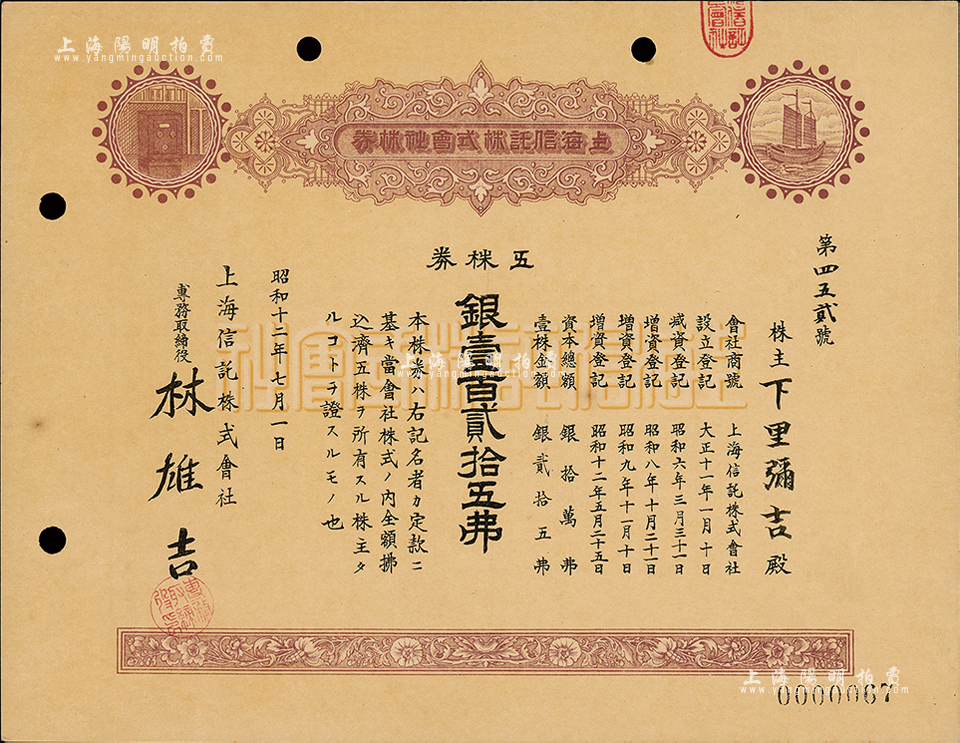 上海陽明拍賣
www.yangmingauction.com
上海信託株式會社株券
第四五貳號
株主 下里彌吉殿
會社商號 上海信託株式會社
設立登記 大正十一年一月十日
減資登記 昭和六年三月三十一日
增資登記 昭和八年十月二十一日
增資登記 昭和九年十一月十日
增資登記 昭和十二年五月二十五日
資本總額 銀拾萬弗
壹株金額 銀貳拾五弗
五株券
銀壹百貳拾五弗
本株券ハ右記名者カ定款ニ
基キ當會社株式ノ內全額拂
込濟五株ヲ所有スル株主タ
ルコトヲ證スルモノ也
昭和十二年七月一日
上海信託株式會社
專務取締役 林雄吉
上海信託株式會社
上海陽明拍賣
www.yangmingauction.com
上海陽明拍賣
www.yangmingauction.com
0000067